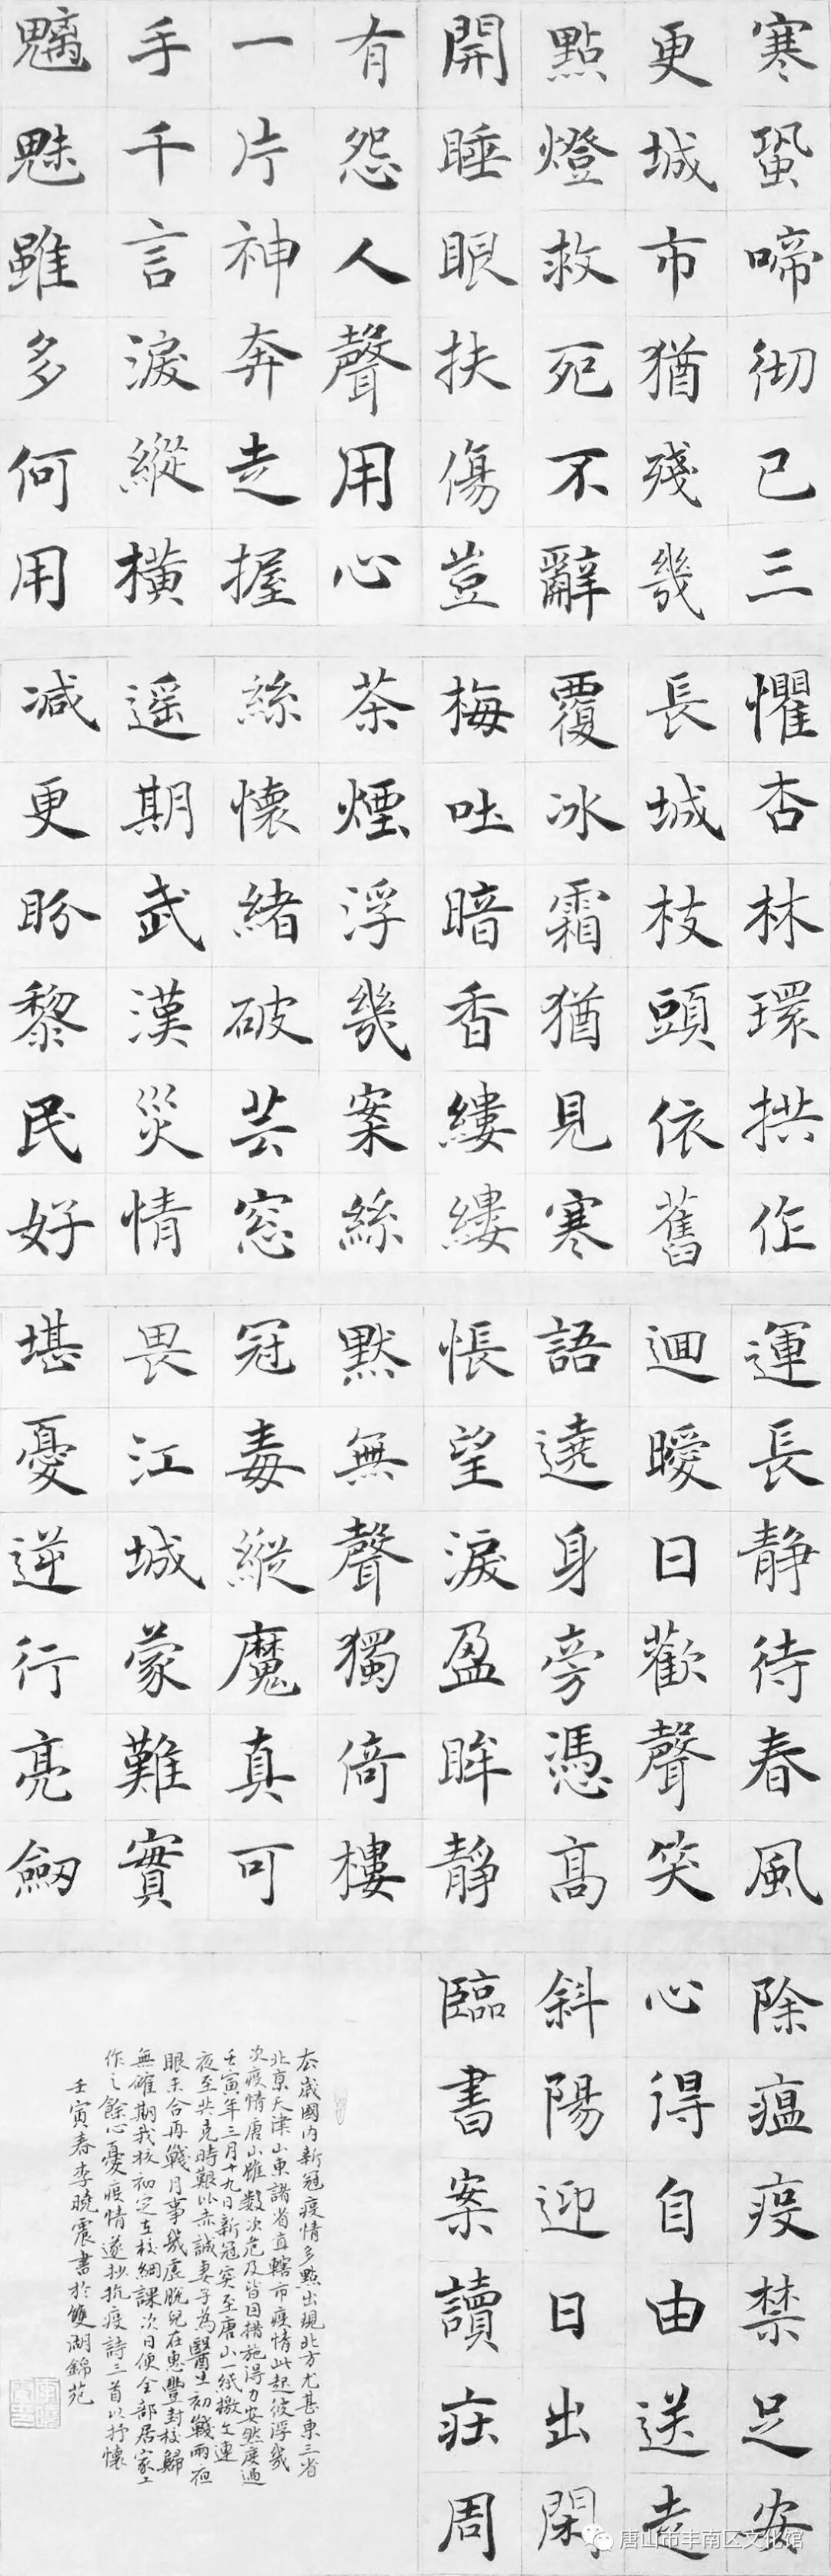 寒蛩啼彻已三
更城市猶殘幾
點燈救死不辭
開睡眼扶傷豈
有怨人聲用心
一片神奔走握
手千言淚縱橫
魑魅雖多何用
懼杏林環拱作
長城枝頭依舊
覆冰霜猶見寒
梅吐暗香縷縷
茶煙浮幾案絲
絲懷緒破芸窓
遥期武漢災情
减更盼黎民好
運長静待春風
迴曖日歡聲笑
語遶身旁憑高
悵望淚盈眸靜
默無聲獨倚樓
冠毒縱魔真可
畏江城蒙難實
堪憂逆行亮劒
除瘟疫禁足安
心得自由送走
斜陽迎日出閑
臨書案讀莊周
去歲國内新冠疫情多點出現北方尤甚東三省
北京天津山東諸省直轄市疫情此起彼浮幾
次疫情唐山雖數次危及皆因措施得力安然度過
壬寅年三月十九日新冠突至唐山一紙檄文連
夜至共克時艱以赤誠妻子為醫生初戰兩夜
眼未合再戰月事幾虛脱兒在惠豐封校歸
無確期我校初定在校網課次日便全部居家工
作之餘心憂疫情遂抄抗疫詩三首以抒懷
壬寅春李曉震書於雙湖錦苑
唐山市丰南区文化馆